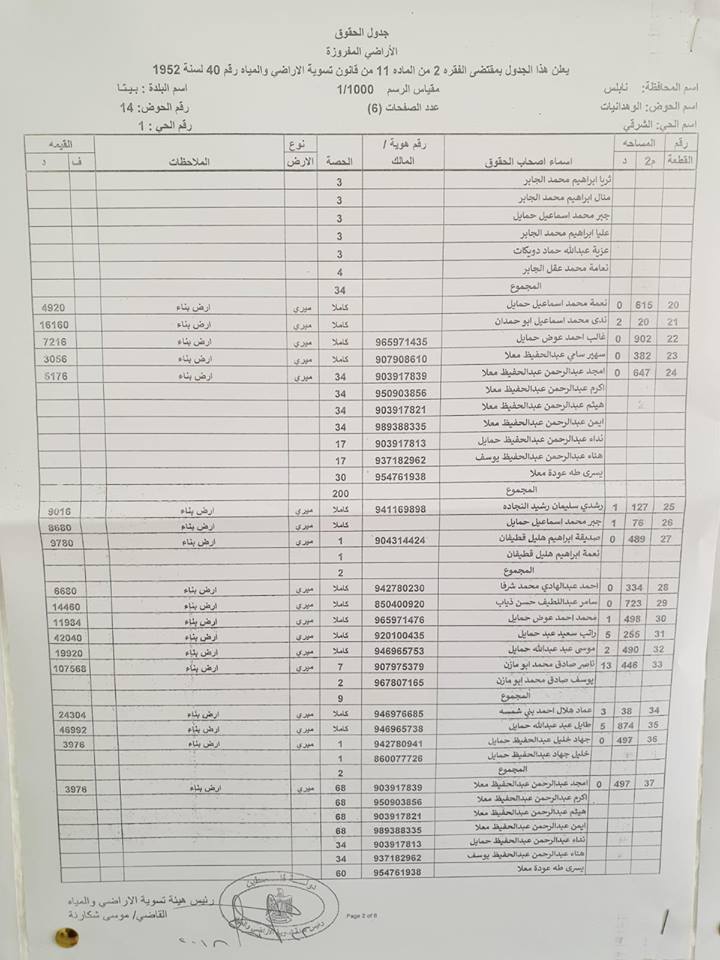 جدول الحقوق
الأراضي المفروزة
يعلن هذا الجدول بمقتضى الفقره 2 من الماده 11 من قانون تسوية الاراضي والمياه رقم 40 لسنة 1952
اسم المحافظة: نابلس مقياس الرسم 1/1000 اسم البلدة : بيتا
اسم الحوض: الوهدانيات عدد الصفحات (6) رقم الحوض: 14
اسم الحي: الشرقي رقم الحي : 1
رقم القطعة المساحه م2 د اسماء اصحاب الحقوق رقم هوية / المالك الحصة نوع الارض الملاحظات القيمه ف د
ثريا ابراهيم محمد الجابر 3
منال ابراهيم محمد الجابر 3
جبر محمد اسماعيل حمايل 3
عليا ابراهيم محمد الجابر 3
عزية عبدالله حماد دويكات 3
نعامة محمد عقل الجابر 4
المجموع 34
20 615 0 نعمة محمد اسماعيل حمايل كاملا ميري ارض بناء 4920
21 20 2 ندى محمد اسماعيل ابو حمدان كاملا ميري ارض بناء 16160
22 902 0 غالب احمد عوض حمايل 965971435 كاملا ميري ارض بناء 7216
23 382 0 سهير سامي عبدالحفيظ معلا 907908610 كاملا ميري ارض بناء 3056
24 647 0 امجد عبدالرحمن عبدالحفيظ معلا 903917839 34 ميري ارض بناء 5176
اكرم عبدالرحمن عبدالحفيظ معلا 950903856 34
هيثم عبدالرحمن عبدالحفيظ معلا 903917821 34
ايمن عبدالرحمن عبدالحفيظ معلا 989388335 34
نداء عبدالرحمن عبدالحفيظ حمايل 903917813 17
هناء عبدالرحمن عبدالحفيظ يوسف 937182962 17
يسرى طه عودة معلا 954761938 30
المجموع 200
25 127 1 رشدي سليمان رشيد النجاده 941169898 كاملا ميري ارض بناء 9016
26 76 1 جبر محمد اسماعيل حمايل كاملا ميري ارض بناء 8680
27 489 0 صديقة ابراهيم هليل قطيفان 904314424 1 ميري ارض بناء 9780
نعمة ابراهيم هليل قطيفان 1
المجموع 2
28 334 0 احمد عبدالهادي محمد شرفا 942780230 كاملا ميري ارض بناء 6680
29 723 0 سامر عبداللطيف حسن ذياب 850400920 كاملا ميري ارض بناء 14460
30 498 1 محمد احمد عوض حمايل 965971476 كاملا ميري ارض بناء 11984
31 255 5 راتب سعيد عبد حمايل 920100435 كاملا ميري ارض بناء 42040
32 490 2 موسى عبد عبدالله حمايل 946965753 كاملا ميري ارض بناء 19920
33 446 13 ناصر صادق محمد ابو مازن 907975379 7 ميري ارض بناء 107568
يوسف صادق محمد ابو مازن 967807165 2
المجموع 9
34 38 3 عماد هلال احمد بني شمسه 946976685 كاملا ميري ارض بناء 24304
35 874 5 طايل عبد عبدالله حمايل 946965738 كاملا ميري ارض بناء 46992
36 497 0 جهاد خليل عبدالحفيظ حمايل 942780941 1 ميري ارض بناء 3976
خليل جهاد عبدالحفيظ حمايل 860077726 1
المجموع 2
37 497 0 امجد عبدالرحمن عبدالحفيظ معلا 903917839 68 ميري ارض بناء 3976
اكرم عبدالرحمن عبدالحفيظ معلا 950903856 68
هيثم عبدالرحمن عبدالحفيظ معلا 903917821 68
ايمن عبدالرحمن عبدالحفيظ معلا 989388335 68
نداء عبدالرحمن عبدالحفيظ حمايل 903917813 34
هناء عبدالرحمن عبدالحفيظ يوسف 937182962 34
يسرى طه عودة معلا 954761938 60
رئيس هيئة تسوية الاراضي والمياه
القاضي/ موسى شكارنة
دولة فلسطين
Page 2 of 6